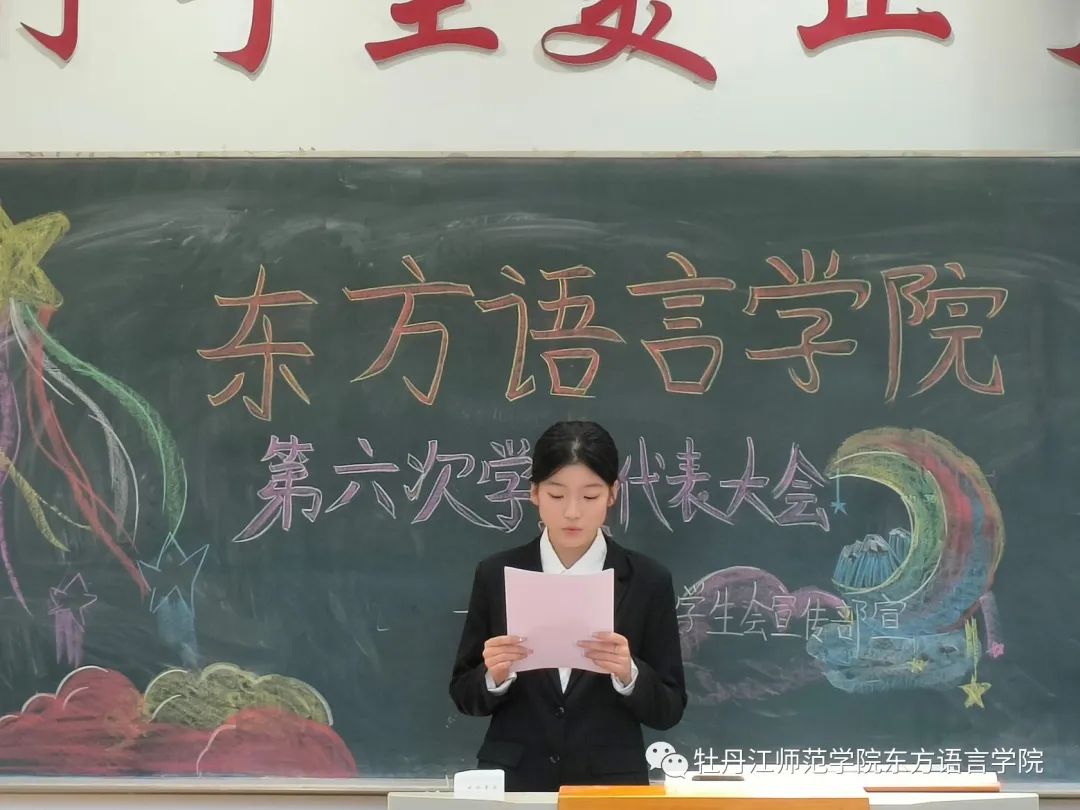 东方语言学院
第六次学 代表大会
学生会宣传部 宣
牡丹江师范学院东方语言学院